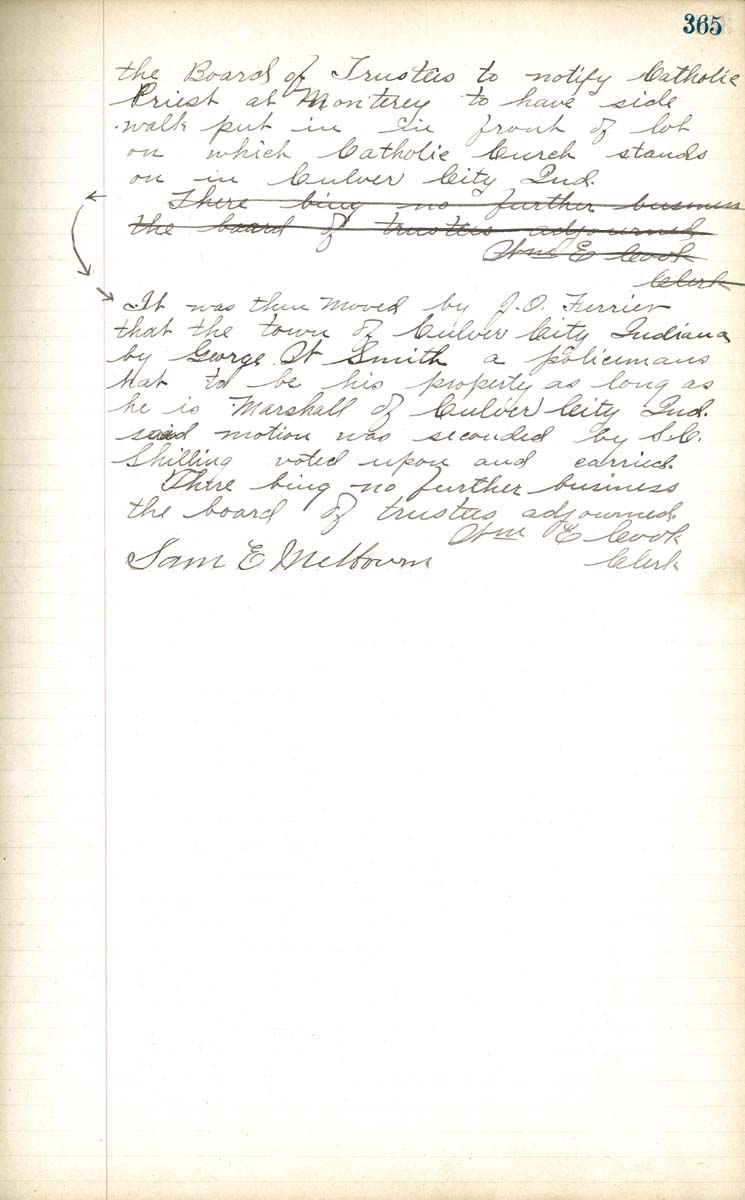 365
the Board of Trustees to notify Catholic
Priest at Monterey to have side
walk put in in front of lot
on which Catholic Curch stands
on in Culver City Ind.
There bing no further business
the board of trustees adjourned
Wm E Cook
Clerk
It was then moved by J.O. Ferrier
that the town of Culver City Indiana
by George W Smith a policemans
Hat to be his property as long as
he is Marshall of Culver City Ind.
said motion was seconded by S.C.
Shilling voted upon and carried.
There bing no further business
the board of trustees adjourned.
Wm E Cook
Sam E Medbourn Clerk